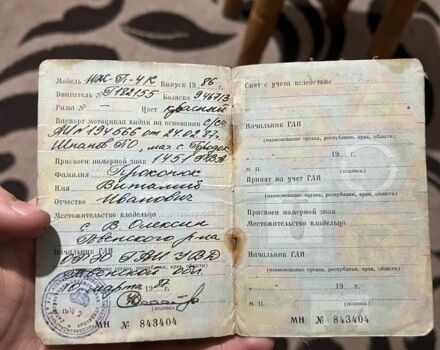 Модель ИЖ-П-4К Выпуск 1986 г.
Двигатель № П182155 Коляска 946713
Рама № — Цвет красный
Паспорт мотоцикла выдан на основании с/сч
194566 от 24.02.87.
маг
Присвоен номерной знак 1451
Фамилия Прокопюк
Имя Виталий
Отчество Иванович
Местожительство владельца
с. В. Олексин
р-на
Начальник ГАИ УВД
обл.
марта
(подпись)
МН № 843404
Снят с учета вследствие
Начальник ГАИ
(наименование органа, республики, края, области)
19 г.
М. П. (подпись)
Принят на учет ГАИ
(наименование органа, республики, края, области)
Присвоен номерной знак
Местожительство владельца
Начальник ГАИ
(наименование органа, республики, края, области)
19 г.
М. П. (подпись)
МН № 843404